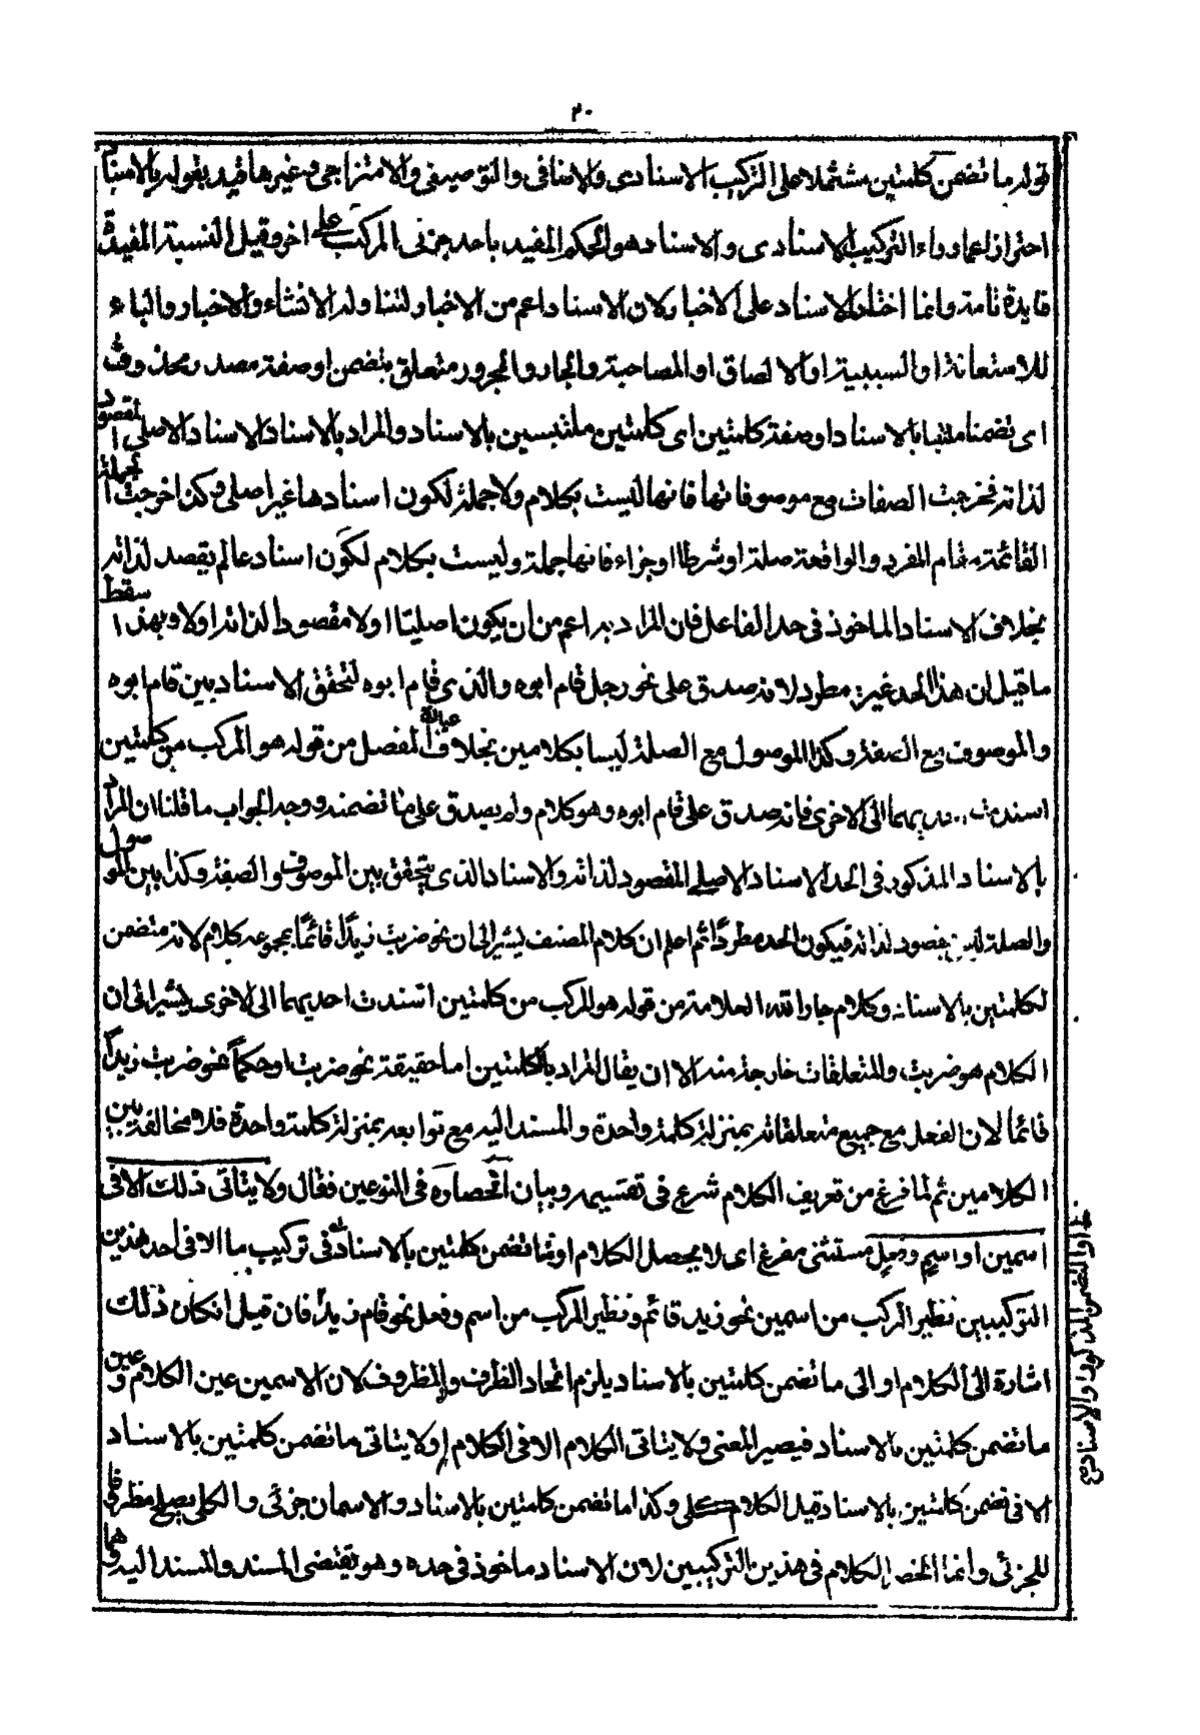 ٢٠
قوله ما تضمن كلمتين مشتملا على التركيب الاسنادى والاضافى والتوصيفى والامتزاجى وغيرها قيد بقوله بالاسناد
احترازا عما وراء التركيب الاسنادى والاسناد هو الحكم المفيد باحد جزئى المركب على اخر وقيل النسبة المفيدة
فايدة تامة وانما اختار الاسناد على الاخبار لان الاسناد اعم من الاخبار لتناوله الانشاء والاخبار والباء
للاستعانة او السببية او الالصاق او المصاحبة والجار والمجرور متعلق بتضمن او صفة مصدر محذوف
اى تضمنا ملتبسا بالاسناد او صفة كلمتين اى كلمتين ملتبسين بالاسناد والمراد بالاسناد الاسناد الاصلى المقصود
لذاته فخرجت الصفات مع موصوفاتها فانها ليست بكلام ولا جملة لكون اسنادها غير اصلى وكذا خرجت الجملة
القائمة مقام المفرد والواقعة صلة او شرطا او جزاء فانها جملة وليست بكلام لكون اسنادها لم يقصد لذاته
بخلاف الاسناد الماخوذ فى حد الفاعل فان المراد به اعم من ان يكون اصليا اولا مقصودا لذاته اولا وبهذا سقط
ما قيل ان هذا الحد غير مطرد لانه صدق على نحو رجل قام ابوه والذى قام ابوه لتحقق الاسناد بين قام ابوه
والموصوف مع الصفة وكذا الموصول مع الصلة ليسا بكلامين بخلاف عبارة المفصل من قوله هو المركب من كلمتين
اسندت احديهما الى الاخرى فانه صدق على قام ابوه وهو كلام ولم يصدق على ما تضمنه ووجه الجواب ما قلنا ان المراد
بالاسناد المذكور فى الحد الاسناد الاصلى المقصود لذاته والاسناد الذى يتحقق بين الموصوف والصفة وكذا بين الموصول
والصلة ليس بمقصود لذاته فيكون الحد مطردًا ثم اعلم ان كلام المصنف يشير الى ان نحو ضربت زيدًا قائمًا بمجموعه كلام لانه متضمن
لكلمتين بالاسناد وكلام جار الله العلامة من قوله هو المركب من كلمتين اسندت احديهما الى الاخرى يشير الى ان
الكلام هو ضربت والمتعلقات خارجة منه الا ان يقال المراد بالكلمتين اما حقيقة نحو ضربت او حكمًا نحو ضربت زيدًا
قائما لان الفعل مع جميع متعلقاته بمنزلة كلمة واحدة والمسند اليه مع توابعه بمنزلة كلمة واحدة فلا مخالفة بين
الكلامين ثم لما فرغ من تعريف الكلام شرع فى تقسيمه وبيان انحصاره فى النوعين فقال ولا يتاتى ذلك الا فى
اسمين او اسم وفعل مستثنى مفرغ اى لا يحصل الكلام او ما تضمن كلمتين بالاسناد فى تركيب ما الا فى احد هذين
التركيبين نظير المركب من اسمين نحو زيد قائم ونظير المركب من اسم وفعل نحو قام زيد فان قيل ان كان ذلك
اشارة الى الكلام او الى ما تضمن كلمتين بالاسناد يلزم اتحاد الظرف والمظروف لان الاسمين عين الكلام وعين
ما تضمن كلمتين بالاسناد فيصير المعنى ولا يتاتى الكلام الا فى الكلام او لا يتاتى ما تضمن كلمتين بالاسناد
الا فى تضمن كلمتين بالاسناد قيل الكلام كلى وكذا ما تضمن كلمتين بالاسناد والاسمان جزئى والكلى يصلح مظروفا
للجزئى وانما انحصر الكلام فى هذين التركيبين لان الاسناد ماخوذ فى حده وهو يقتضى المسند والمسند اليه وهما
او التضمن المذكور او الاسناد